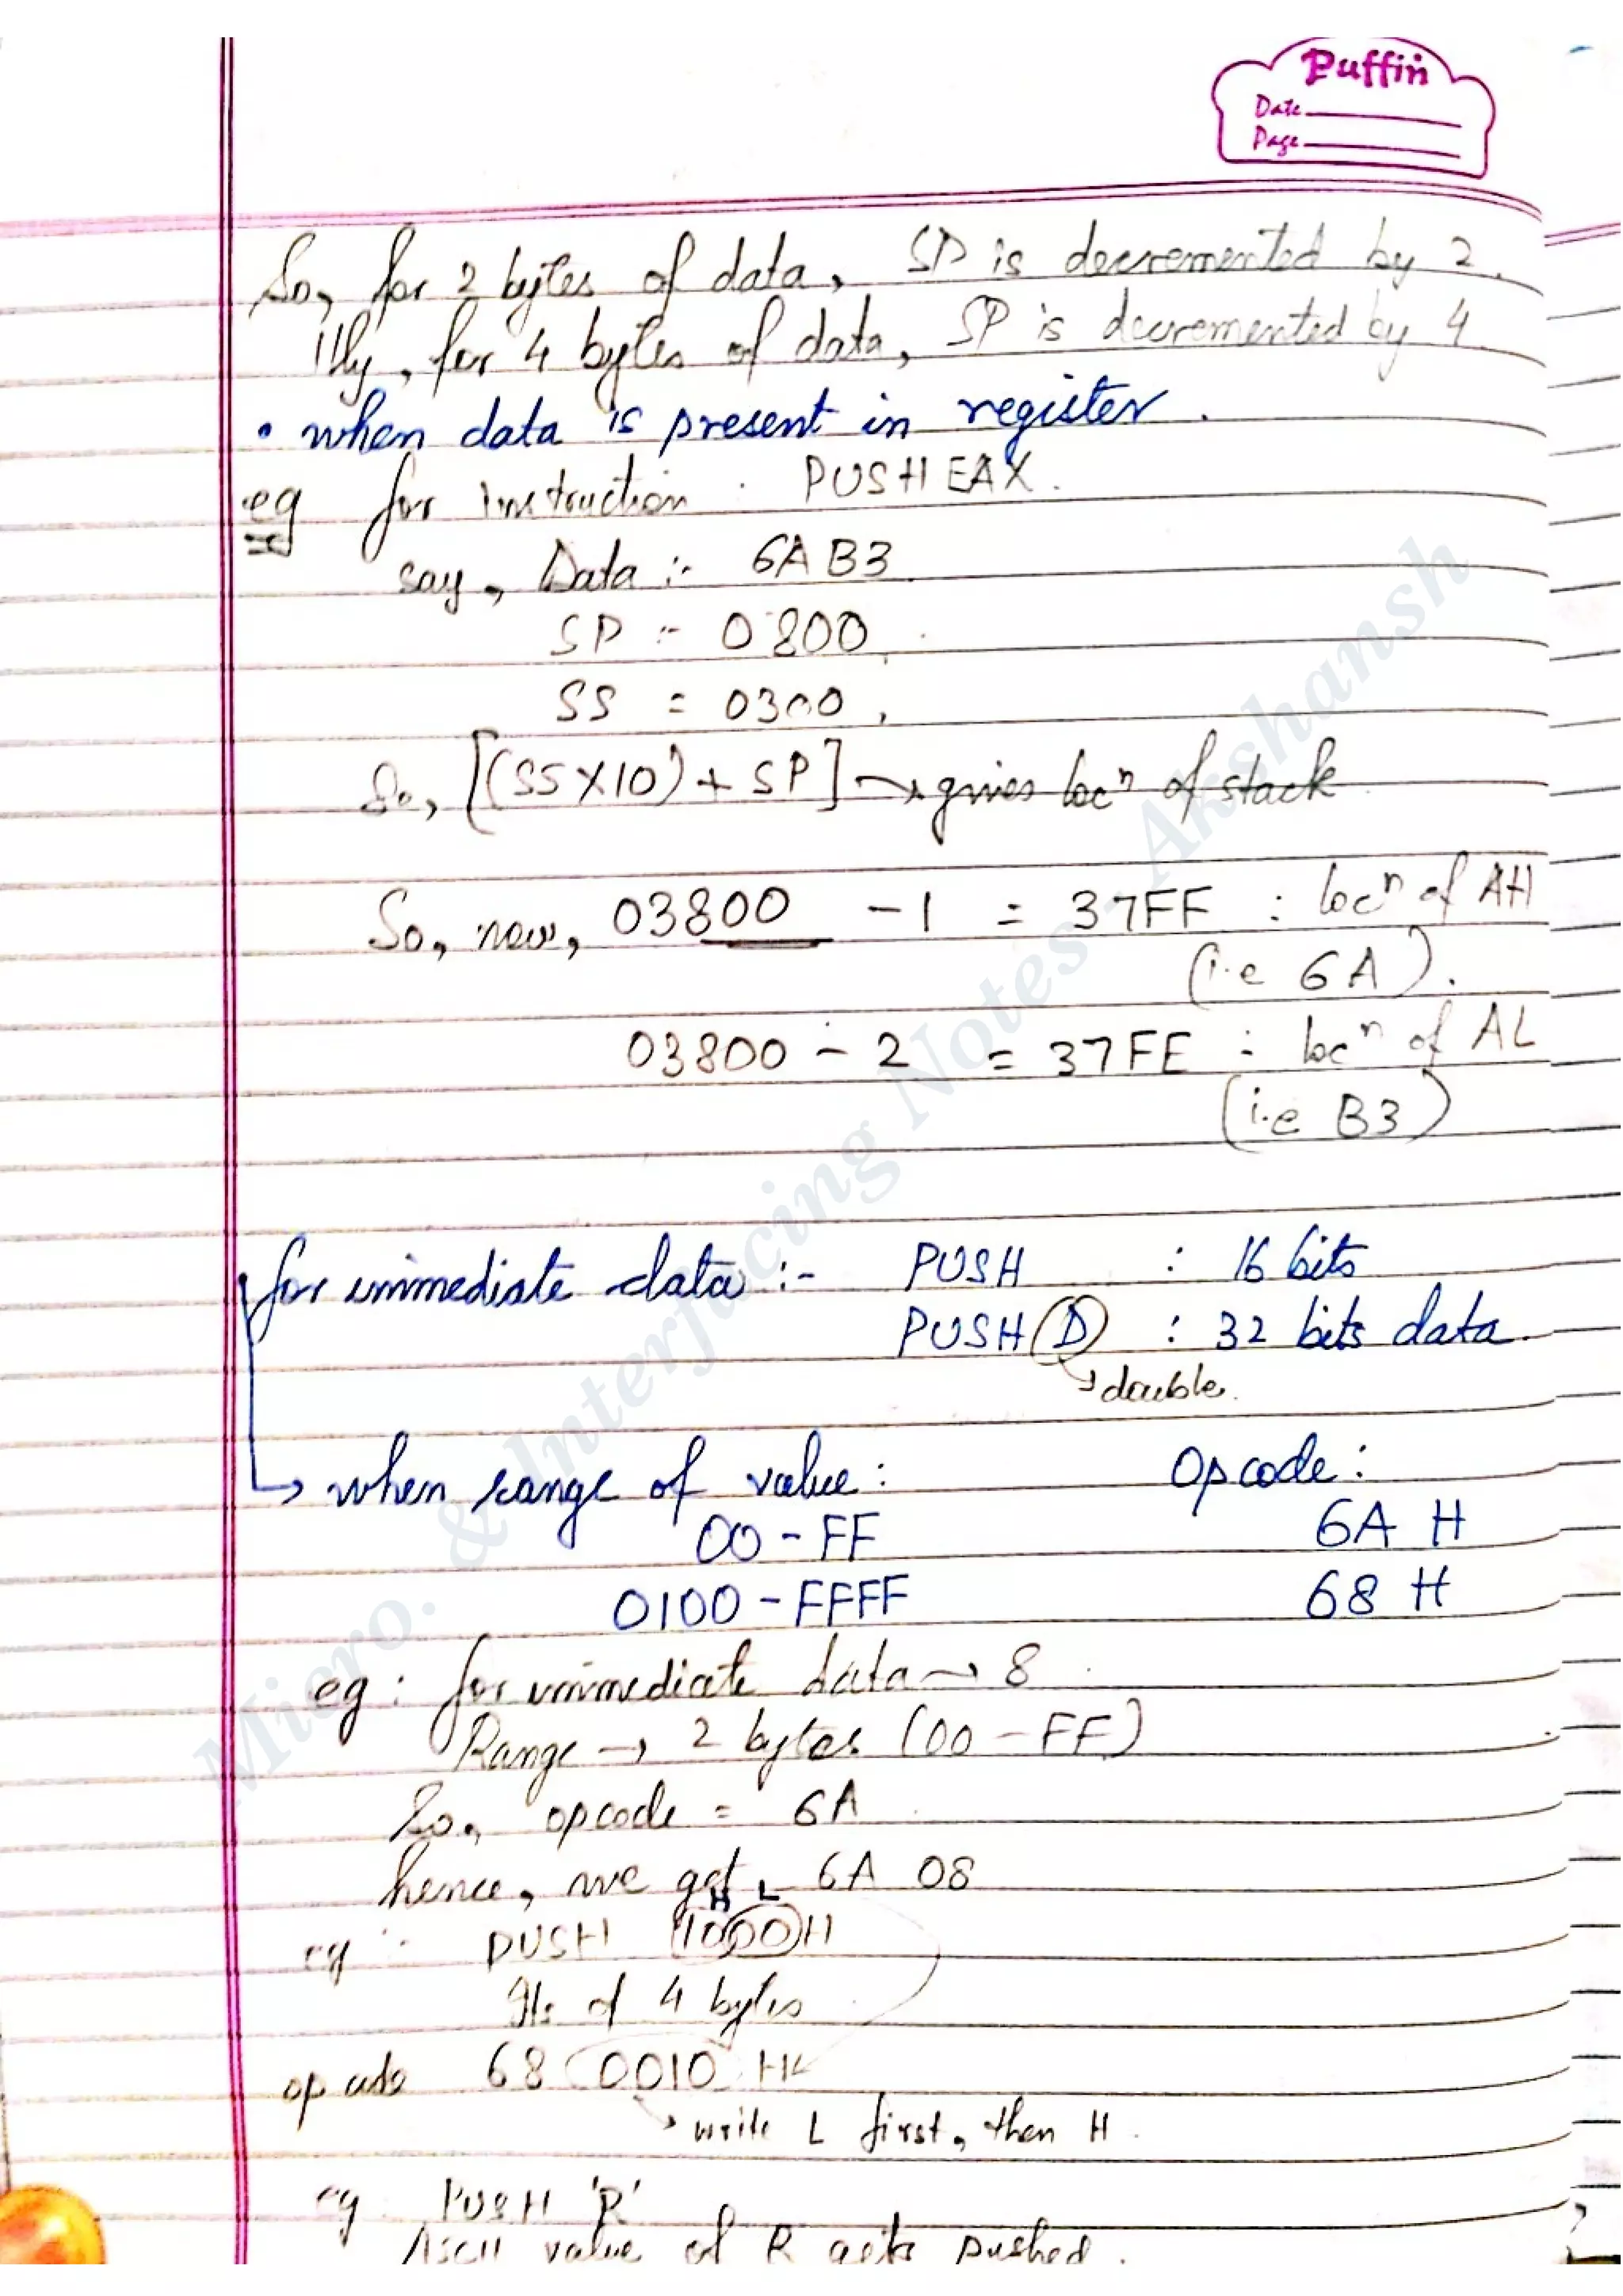 Puffin
Date
Page
So, for 2 bytes of data, SP is decremented by 2.
111ly, for 4 bytes of data, SP is decremented by 4
• when data is present in register.
eg for instruction : PUSH EAX.
say, Data :- 6AB3
SP :- 0800,
SS = 0300,
So, [(SS×10) + SP] → gives locⁿ of stack
So, now, 03800 - 1 = 37FF : locⁿ of AH
(i.e 6A).
03800 - 2 = 37FE : locⁿ of AL
(i.e B3)
for immediate data :- PUSH : 16 bits
PUSH(D) : 32 bits data.
→ double.
→ when range of value : Opcode :
00 - FF 6A H
0100 - FFFF 68 H
eg : for immediate data → 8
Range → 2 bytes (00 - FF)
So, opcode = 6A
hence, we get, 6A 08
H L
eg :- PUSH 1000H
Its of 4 bytes
opcode 68 0010 H
→ write L first, then H.
eg PUSH 'R'
ASCII value of R gets pushed.
Micro. & Interfacing Notes - Akshansh